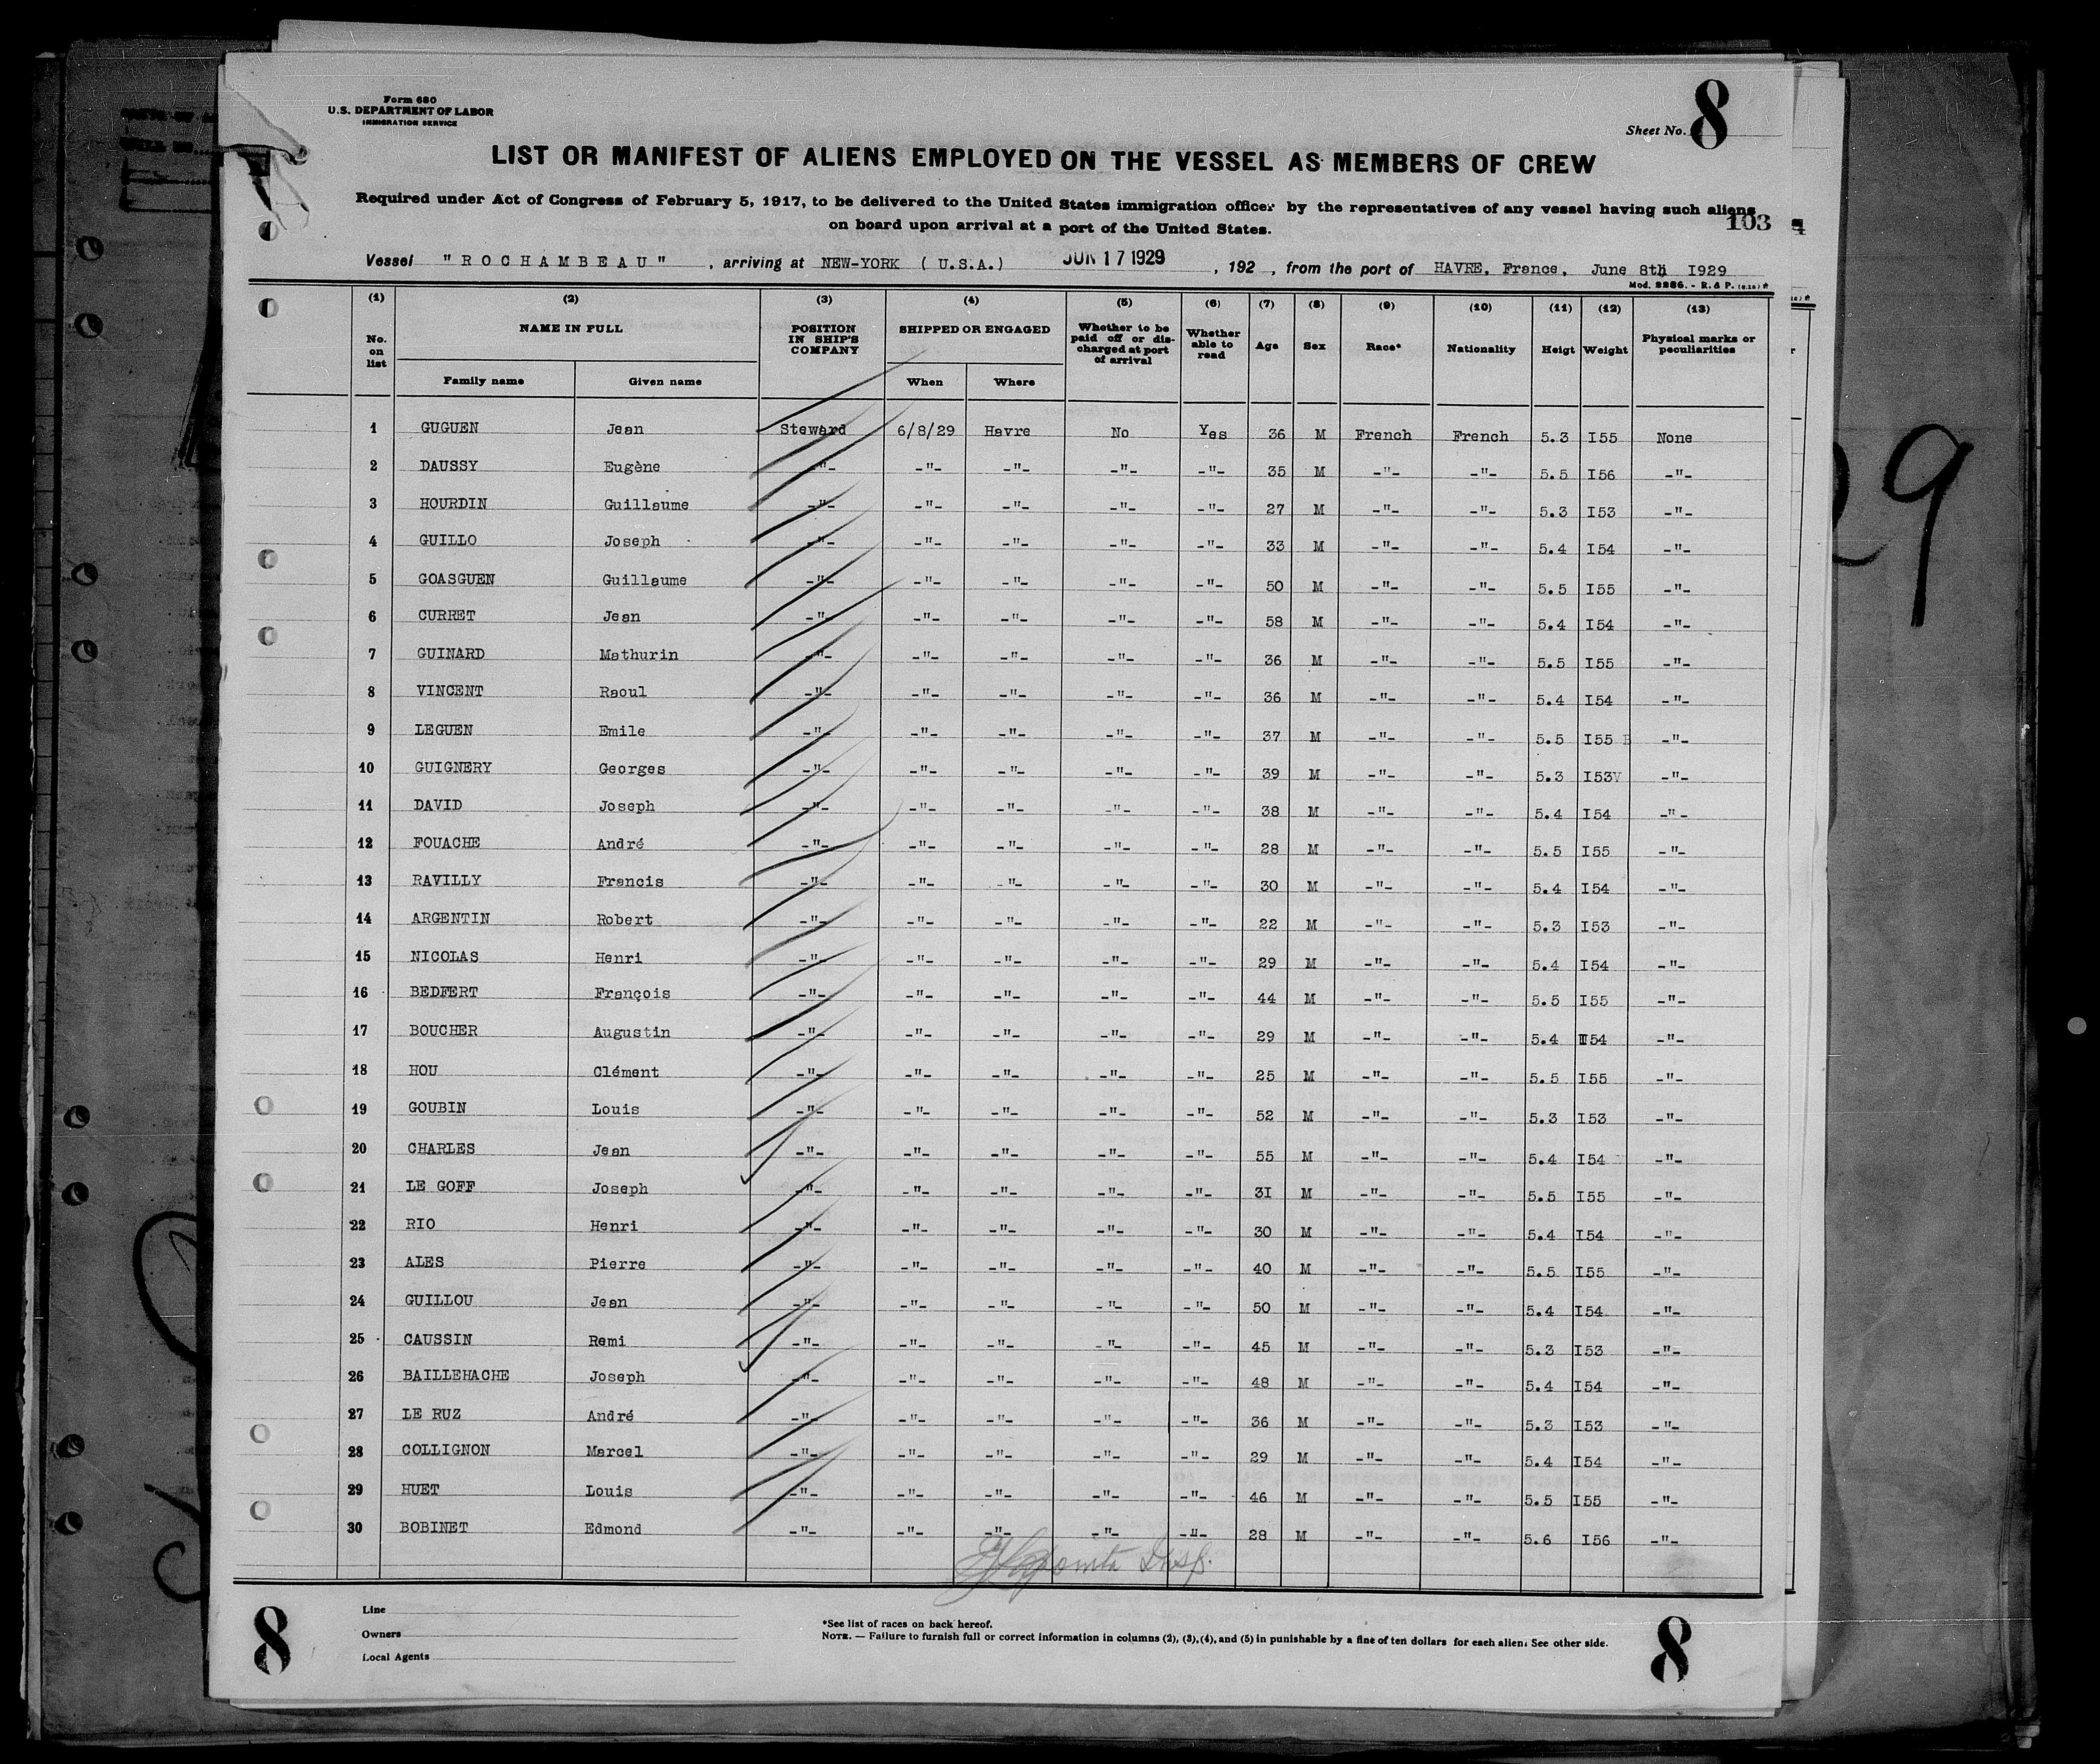 Form 680
U.S. DEPARTMENT OF LABOR
IMMIGRATION SERVICE
Sheet No. 8
LIST OR MANIFEST OF ALIENS EMPLOYED ON THE VESSEL AS MEMBERS OF CREW
Required under Act of Congress of February 5, 1917, to be delivered to the United States immigration officer by the representatives of any vessel having such aliens
on board upon arrival at a port of the United States.
103
Vessel "ROCHAMBEAU", arriving at NEW-YORK (U.S.A.) JUN 17 1929, 192 , from the port of HAVRE, France, June 8th 1929
Mod. 2286. - R. & P.
(1) (2) (3) (4) (5) (6) (7) (8) (9) (10) (11) (12) (13)
No. on list NAME IN FULL POSITION IN SHIP'S COMPANY SHIPPED OR ENGAGED Whether to be paid off or discharged at port of arrival Whether able to read Age Sex Race* Nationality Heigt Weight Physical marks or peculiarities
Family name Given name When Where
1 GUGUEN Jean Steward 6/8/29 Havre No Yes 36 M French French 5.3 I55 None
2 DAUSSY Eugène -"- -"- -"- -"- -"- 35 M -"- -"- 5.5 I56 -"-
3 HOURDIN Guillaume -"- -"- -"- -"- -"- 27 M -"- -"- 5.3 I53 -"-
4 GUILLO Joseph -"- -"- -"- -"- -"- 33 M -"- -"- 5.4 I54 -"-
5 GOASGUEN Guillaume -"- -"- -"- -"- -"- 50 M -"- -"- 5.5 I55 -"-
6 CURRET Jean -"- -"- -"- -"- -"- 58 M -"- -"- 5.4 I54 -"-
7 GUINARD Mathurin -"- -"- -"- -"- -"- 36 M -"- -"- 5.5 I55 -"-
8 VINCENT Raoul -"- -"- -"- -"- -"- 36 M -"- -"- 5.4 I54 -"-
9 LEGUEN Emile -"- -"- -"- -"- -"- 37 M -"- -"- 5.5 I55 -"-
10 GUIGNERY Georges -"- -"- -"- -"- -"- 39 M -"- -"- 5.3 I53 -"-
11 DAVID Joseph -"- -"- -"- -"- -"- 38 M -"- -"- 5.4 I54 -"-
12 FOUACHE André -"- -"- -"- -"- -"- 28 M -"- -"- 5.5 I55 -"-
13 RAVILLY Francis -"- -"- -"- -"- -"- 30 M -"- -"- 5.4 I54 -"-
14 ARGENTIN Robert -"- -"- -"- -"- -"- 22 M -"- -"- 5.3 I53 -"-
15 NICOLAS Henri -"- -"- -"- -"- -"- 29 M -"- -"- 5.4 I54 -"-
16 BEDFERT François -"- -"- -"- -"- -"- 44 M -"- -"- 5.5 I55 -"-
17 BOUCHER Augustin -"- -"- -"- -"- -"- 29 M -"- -"- 5.4 I54 -"-
18 HOU Clément -"- -"- -"- -"- -"- 25 M -"- -"- 5.5 I55 -"-
19 GOUBIN Louis -"- -"- -"- -"- -"- 52 M -"- -"- 5.3 I53 -"-
20 CHARLES Jean -"- -"- -"- -"- -"- 55 M -"- -"- 5.4 I54 -"-
21 LE GOFF Joseph -"- -"- -"- -"- -"- 3I M -"- -"- 5.5 I55 -"-
22 RIO Henri -"- -"- -"- -"- -"- 30 M -"- -"- 5.4 I54 -"-
23 ALES Pierre -"- -"- -"- -"- -"- 40 M -"- -"- 5.5 I55 -"-
24 GUILLOU Jean -"- -"- -"- -"- -"- 50 M -"- -"- 5.4 I54 -"-
25 CAUSSIN Remi -"- -"- -"- -"- -"- 45 M -"- -"- 5.3 I53 -"-
26 BAILLEHACHE Joseph -"- -"- -"- -"- -"- 48 M -"- -"- 5.4 I54 -"-
27 LE RUZ André -"- -"- -"- -"- -"- 36 M -"- -"- 5.3 I53 -"-
28 COLLIGNON Marcel -"- -"- -"- -"- -"- 29 M -"- -"- 5.4 I54 -"-
29 HUET Louis -"- -"- -"- -"- -"- 46 M -"- -"- 5.5 I55 -"-
30 BOBINET Edmond -"- -"- -"- -"- -"- 28 M -"- -"- 5.6 I56 -"-
Insp.
8 8
Line
Owners
Local Agents
*See list of races on back hereof.
NOTE. — Failure to furnish full or correct information in columns (2), (3), (4), and (5) in punishable by a fine of ten dollars for each alien. See other side.